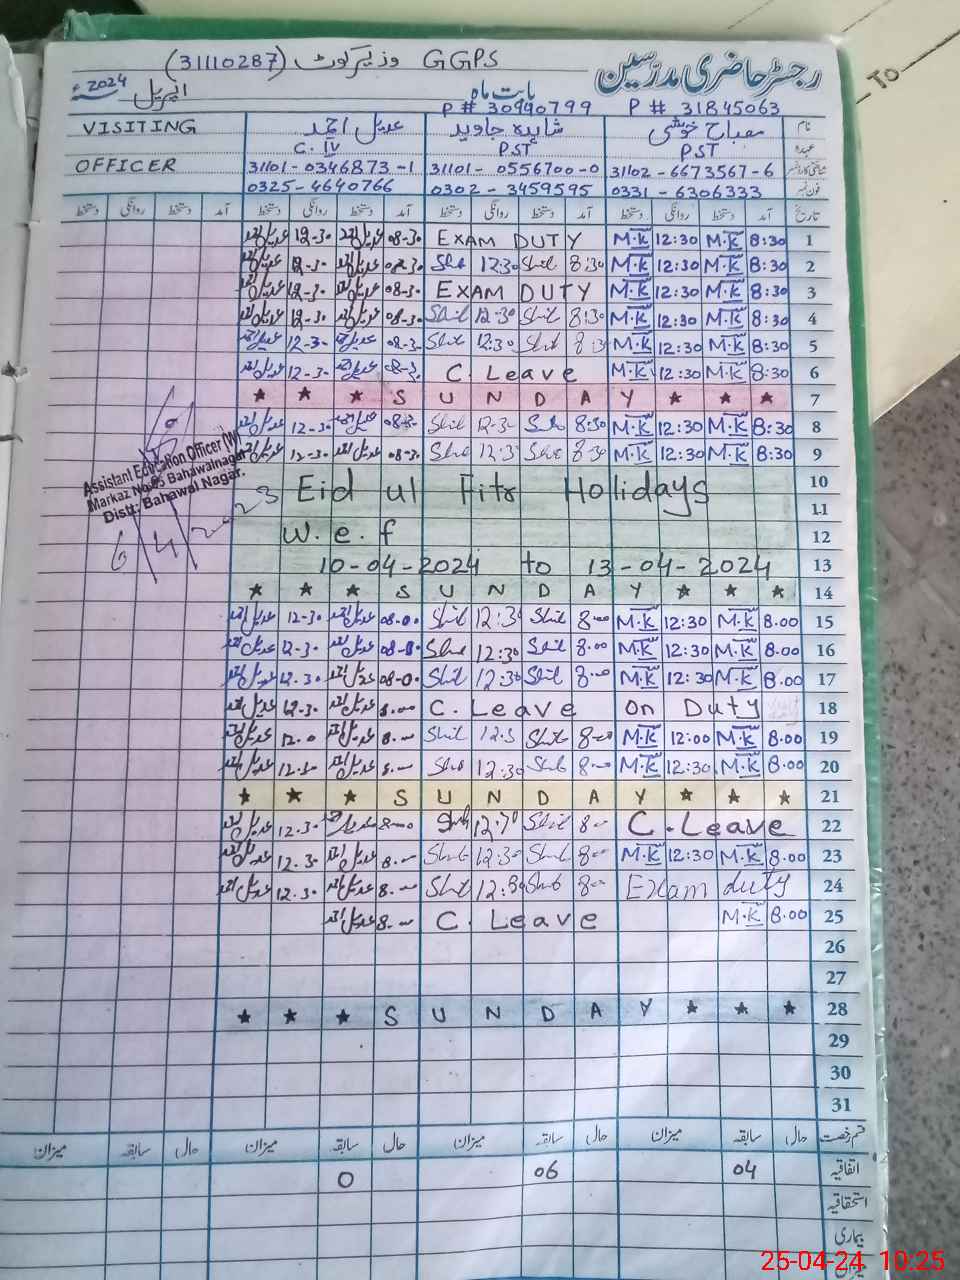 رجسٹر حاضری مدرسین GGPS وزیر کوٹ (31110287)
بابت ماہ اپریل 2024ء
P # 31845063 P # 30940799
نام مصباح خوشی شاہدہ جاوید عدیل احمد VISITING
عہدہ PST PST C. IV
شناختی کارڈ نمبر 31102 - 6673567 - 6 31101 - 0556700 - 0 31101 - 0346873 - 1 OFFICER
فون نمبر 0331 - 6306333 0302 - 3459595 0325 - 4640766
تاریخ آمد دستخط روانگی دستخط آمد دستخط روانگی دستخط آمد دستخط روانگی دستخط آمد دستخط روانگی دستخط
1 8:30 M.K 12:30 M.K EXAM DUTY 08-30 عدیل احمد 12-30 عدیل احمد
2 8:30 M.K 12:30 M.K 8:30 12:30 08-30 عدیل احمد 12-30 عدیل احمد
3 8:30 M.K 12:30 M.K EXAM DUTY 08-30 عدیل احمد 12-30 عدیل احمد
4 8:30 M.K 12:30 M.K 8:30 12:30 08-30 عدیل احمد 12-30 عدیل احمد
5 8:30 M.K 12:30 M.K 8:30 12:30 08-30 عدیل احمد 12-30 عدیل احمد
6 8:30 M.K 12:30 M.K C. Leave 08-30 عدیل احمد 12-30 عدیل احمد
7 ★ ★ ★ S U N D A Y ★ ★ ★
8 8:30 M.K 12:30 M.K 8:30 12:30 08-30 عدیل احمد 12-30 عدیل احمد
9 8:30 M.K 12:30 M.K 8:30 12:30 08-30 عدیل احمد 12-30 عدیل احمد
Assistant Education Officer (W)
Markaz No. 05 Bahawalnagar
Distt: Bahawal Nagar.
10 Eid ul Fitr Holidays
11
12 W.e.f
13 10-04-2024 to 13-04-2024
14 ★ ★ ★ S U N D A Y ★ ★ ★
15 8.00 M.K 12:30 M.K 8.00 12:30 08-00 عدیل احمد 12-30 عدیل احمد
16 8.00 M.K 12:30 M.K 8.00 12:30 08-00 عدیل احمد 12-30 عدیل احمد
17 8.00 M.K 12:30 M.K 8.00 12:30 08-00 عدیل احمد 12.30 عدیل احمد
18 On Duty C. Leave 8.00 عدیل احمد 12.30 عدیل احمد
19 8.00 M.K 12:00 M.K 8.00 8.00 عدیل احمد 12.0 عدیل احمد
20 8.00 M.K 12:30 M.K 8.00 12:30 8.00 عدیل احمد 12.30 عدیل احمد
21 ★ ★ ★ S U N D A Y ★ ★ ★
22 C. Leave 8.00 8.00 عدیل احمد 12.30 عدیل احمد
23 8.00 M.K 12:30 M.K 8.00 12:30 8.00 عدیل احمد 12.30 عدیل احمد
24 Exam duty 8.00 12:30 8.00 عدیل احمد 12.30 عدیل احمد
25 8.00 M.K C. Leave 8.00 عدیل احمد
26
27
28 ★ ★ ★ S U N D A Y ★ ★ ★
29
30
31
قسم رخصت حال سابقہ میزان حال سابقہ میزان حال سابقہ میزان حال سابقہ میزان
اتفاقیہ 04 06 0
استحقاقیہ
بیماری
میزان
To
25-04-24 10:25